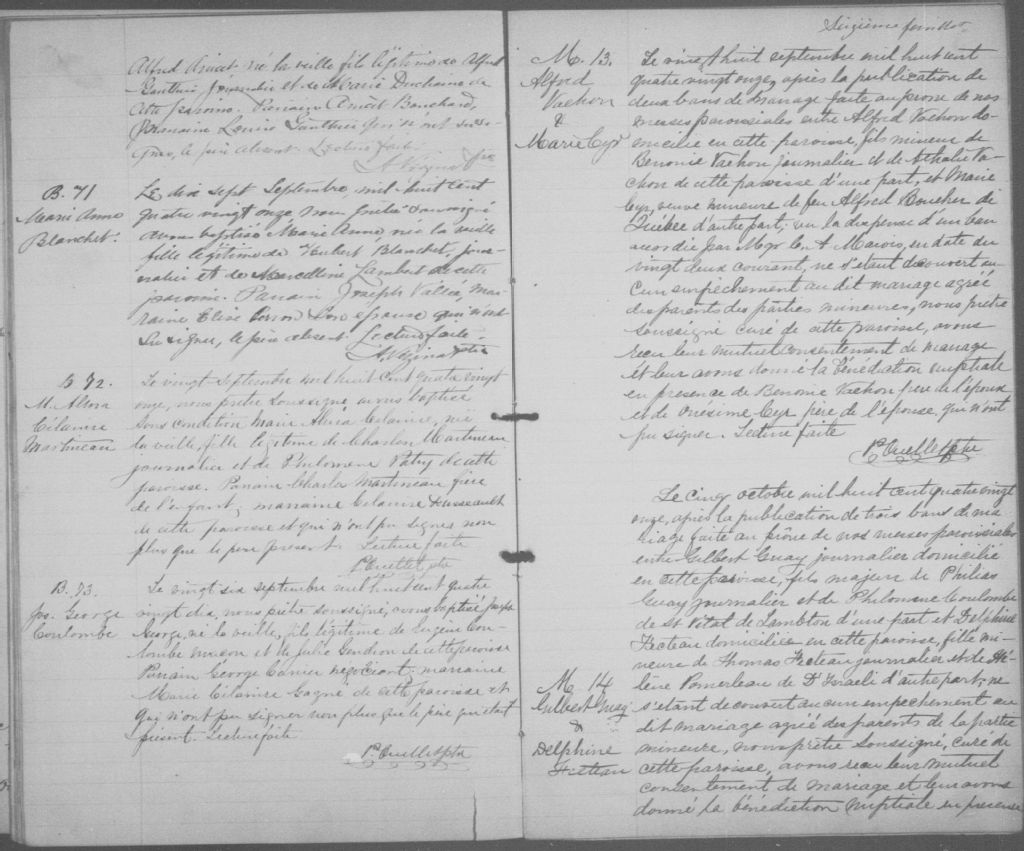 Alfred né la veille fils légitime de Alfred
Gauthier Journalier et de Marie Duchaine de
cette paroisse. Parrain Bouchard,
Marraine Louise Gauthier qui n'ont su si-
gner, le père absent. Lecture faite
ptre
B. 71
Marie Anna
Blanchet.
Le dix sept Septembre, mil huit cent
quatre vingt onze, nous prêtre soussigné
avons baptisé Marie Anna, née la veille
fille légitime de Hubert Blanchet, jour-
nalier et de Marcelline Lambert de cette
paroisse. Parrain Joseph Vallée, mar-
raine Elise son épouse qui n'ont
su signer, le père absent. Lecture faite.
ptre
B 72.
M. Alvina
Cilanire
Martineau
Le vingt Septembre mil huit cent quatre vingt
onze, nous prêtre soussigné avons baptisé
sous condition Marie Cilanire, née
la veille, fille légitime de Charles Martineau
journalier et de Philomène Patry de cette
paroisse. Parrain Charles Martineau frère
de l'enfant; marraine Cilanire
de cette paroisse et qui n'ont pu signer non
plus que le père présent. Lecture faite
P Ouellet ptre
B. 73.
Jos. George
Coulombe
Le vingt six septembre mil huit cent quatre
vingt dix, nous prêtre soussigné, avons baptisé Joseph
George, né la veille, fils légitime de Eugène Cou-
lombe maçon et de Julie Gendron de cette paroisse
Parrain George Carrier négociant; marraine
Marie Cilanire Gagné de cette paroisse et
qui n'ont pu signer non plus que le père qui était
présent. Lecture faite
P Ouellet ptre
Sixième feuillet
M. 13.
Alfred
Vachon
&
Marie Cyr
Le vingt huit septembre mil huit cent
quatre vingt onze, après la publication de
deux bans de mariage faite au prône de nos
messes paroissiales entre Alfred Vachon do-
micilié en cette paroisse, fils mineur de
Benonie Vachon journalier et de Athalie Va-
chon de cette paroisse d'une part, et Marie
Cyr, veuve mineure de feu Alfred Boucher de
Québec d'autre part; vu la dispense d'un ban
accordée par Mgr Marois, en date du
vingt deux courant, ne s'étant découvert au-
cun empêchement au dit mariage agréé
des parents des parties mineures, nous prêtre
soussigné curé de cette paroisse, avons
reçu leur mutuel consentement de mariage
et leur avons donné la bénédiction nuptiale
en présence de Benonie Vachon père de l'époux
et de Onésime Cyr père de l'épouse, qui n'ont
pu signer. Lecture faite
P Ouellet ptre
M. 14
Gilbert Guay
&
Delphine
Fecteau
Le cinq octobre mil huit cent quatre vingt
onze, après la publication de trois bans de ma-
riage faite au prône de nos messes paroissiales
entre Gilbert Guay journalier domicilié
en cette paroisse, fils majeur de Philias
Guay journalier et de Philomène Coulombe
de St Vital de Lambton d'une part et Delphine
Fecteau domiciliée en cette paroisse, fille mi-
neure de Thomas Fecteau journalier et de Hé-
lène Pomerleau de D'Israeli d'autre part; ne
s'étant découvert aucun empêchement au
dit mariage agréé des parents de la partie
mineure, nous prêtre soussigné, curé de
cette paroisse, avons reçu leur mutuel
consentement de mariage et leur avons
donné la bénédiction nuptiale en présence